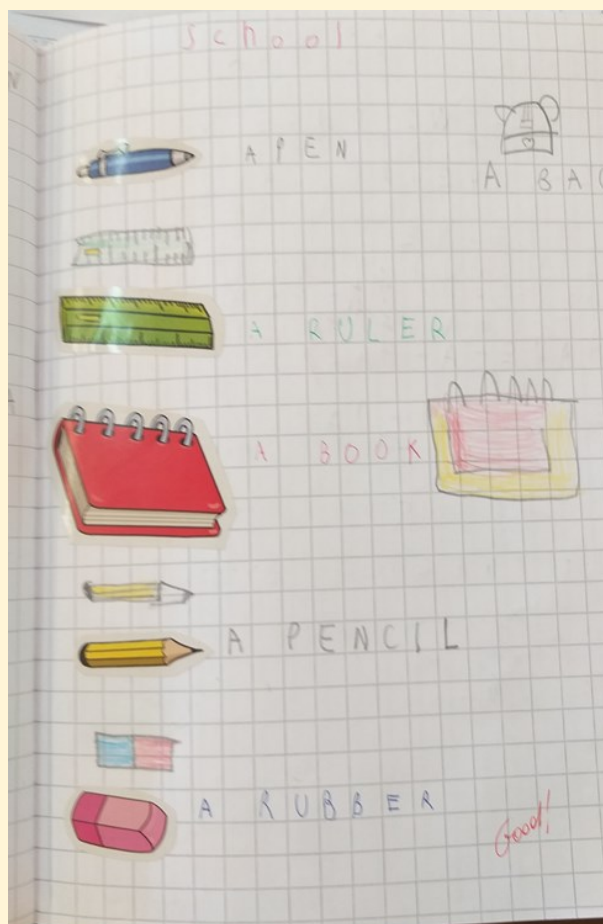 school
A PEN
A BAG
A RULER
A BOOK
A PENCIL
A RUBBER
Good!